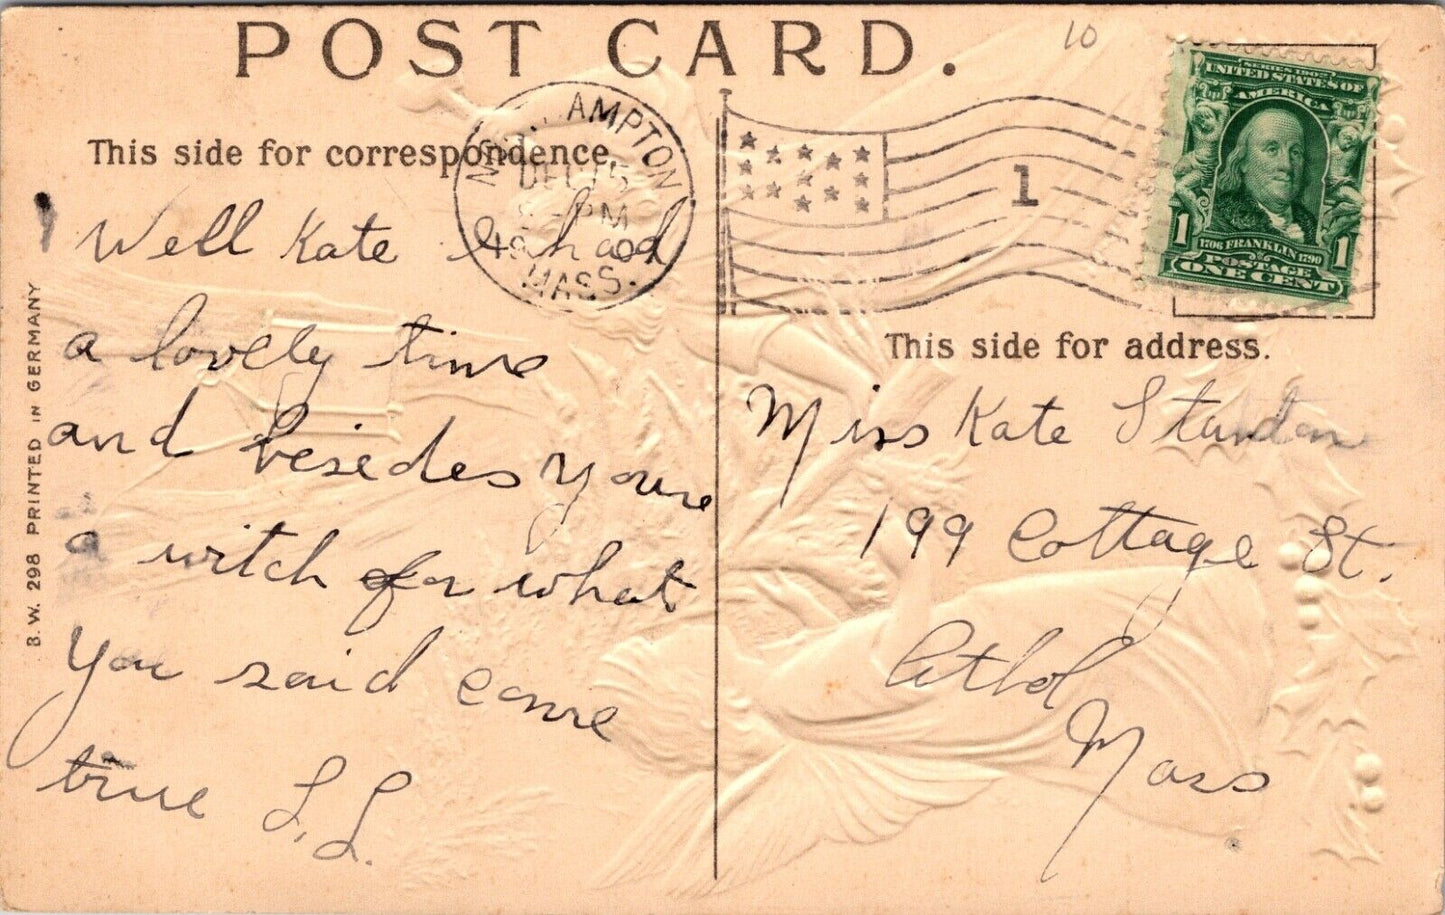 POST CARD.
10
This side for correspondence.
AMPTON
DEC 15
PM
MASS.
1
SERIES 1902
UNITED STATES OF
AMERICA
1 1
1706 FRANKLIN 1790
POSTAGE
ONE CENT
Well Kate I had
a lovely time
and besides youre
a witch for what
you said came
true L. L.
This side for address.
Miss Kate
199 Cottage St.
Athol
Mass
B. W. 298 PRINTED IN GERMANY